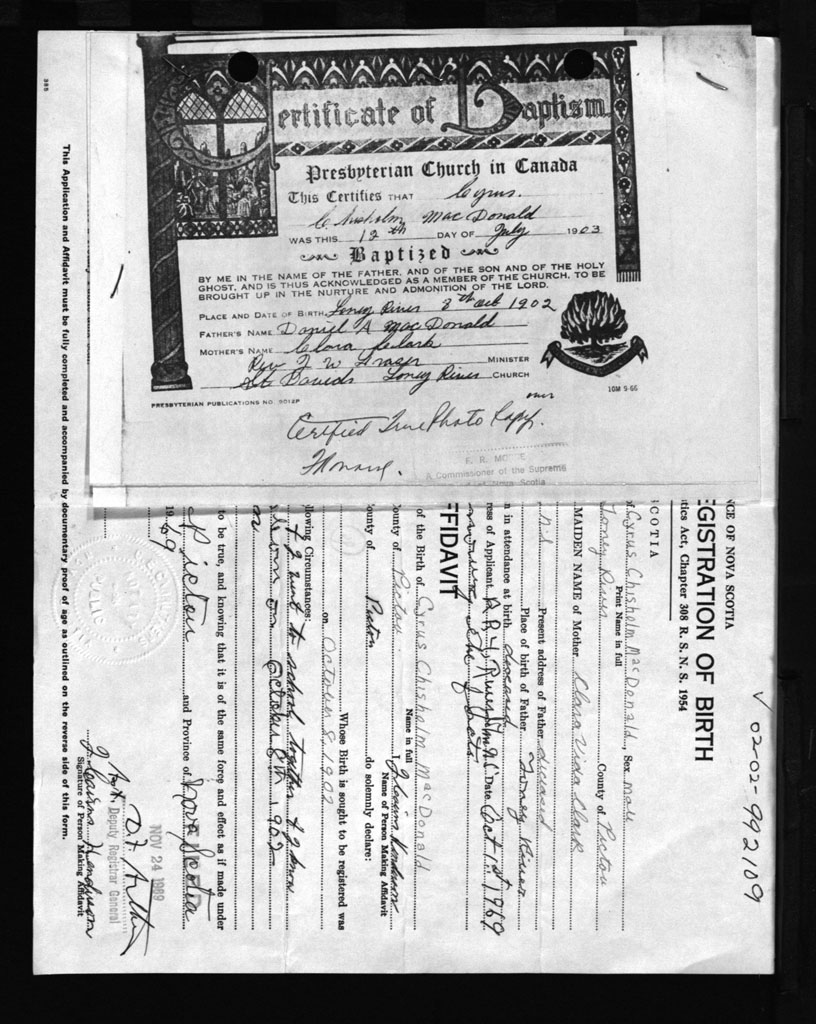 Certificate of Baptism
Presbyterian Church in Canada
This Certifies THAT Cyrus.
Chisholm MacDonald
WAS THIS 12th DAY OF July 1903
Baptized
BY ME IN THE NAME OF THE FATHER, AND OF THE SON AND OF THE HOLY
GHOST, AND IS THUS ACKNOWLEDGED AS A MEMBER OF THE CHURCH, TO BE
BROUGHT UP IN THE NURTURE AND ADMONITION OF THE LORD.
PLACE AND DATE OF BIRTH, Toney River 8th Oct 1902
FATHER'S NAME Daniel A MacDonald
MOTHER'S NAME Clara Clark
Rev J W Fraser MINISTER
St Davids Toney River CHURCH
PRESBYTERIAN PUBLICATIONS NO. 9012P
10M 9-66
Certified True Photo Copy.
F. R.
A Commissioner of the Supreme
Nova Scotia
✓ 02-02-992109
NCE OF NOVA SCOTIA
EGISTRATION OF BIRTH
tics Act, Chapter 308 R. S. N. S. 1954
SCOTIA
of Cyrus Chisholm MacDonald, Sex male
Print Name in full
Toney River County of Pictou
MAIDEN NAME of Mother Clara Viola Clark
Present address of Father deceased
Place of birth of Father Toney River
n in attendance at birth deceased
ress of Applicant R R 4, River John, N.S. Date Oct 1st 1969
FFIDAVIT
of the Birth of Cyrus Chisholm MacDonald
Name in full
ounty of Pictou I,
Name of Person Making Affidavit
ounty of Pictou do solemnly declare:
Whose Birth is sought to be registered was
on October 8, 1902
llowing Circumstances:
& I went to school together & I know
born on October 8th 1902
to be true, and knowing that it is of the same force and effect as if made under
Pictou and Province of Nova Scotia
1969
NOV 24 1989
Deputy Registrar General
Signature of Person Making Affidavit
This Application and Affidavit must be fully completed and accompanied by documentary proof of age as outlined on the reverse side of this form.
385